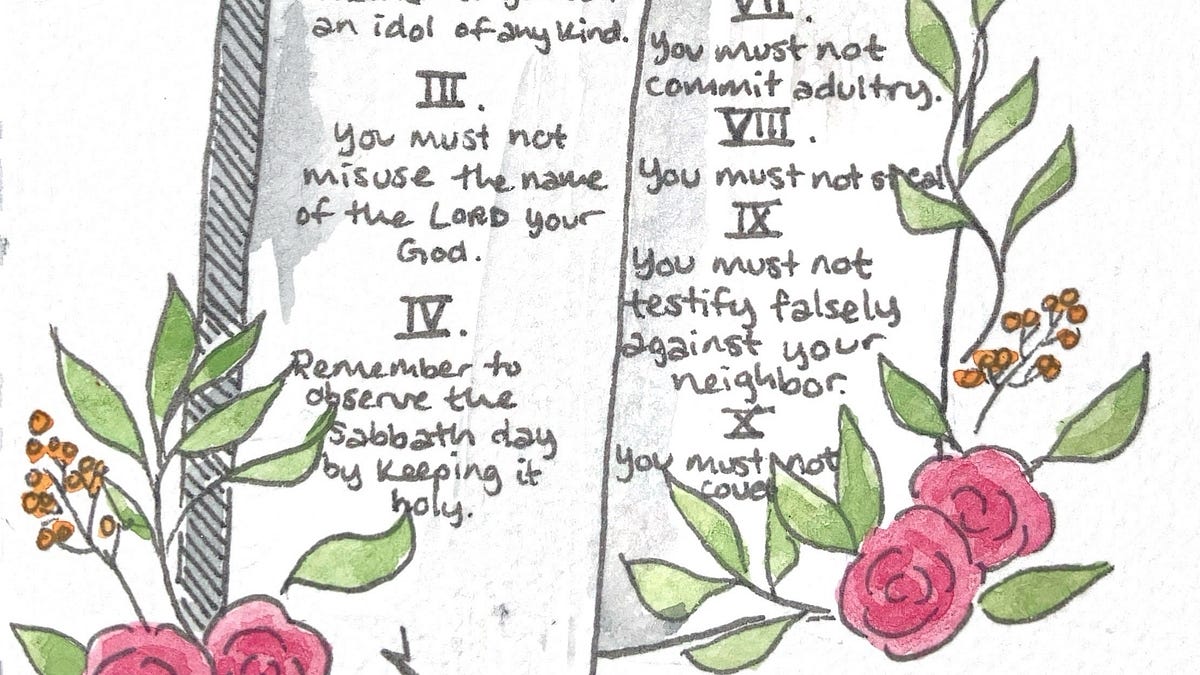 an idol of any kind.
III.
You must not
misuse the name
of the LORD your
God.
IV.
Remember to
observe the
Sabbath day
by keeping it
holy.
VII.
You must not
commit adultry.
VIII.
You must not steal
IX
You must not
testify falsely
against your
neighbor.
X
You must not